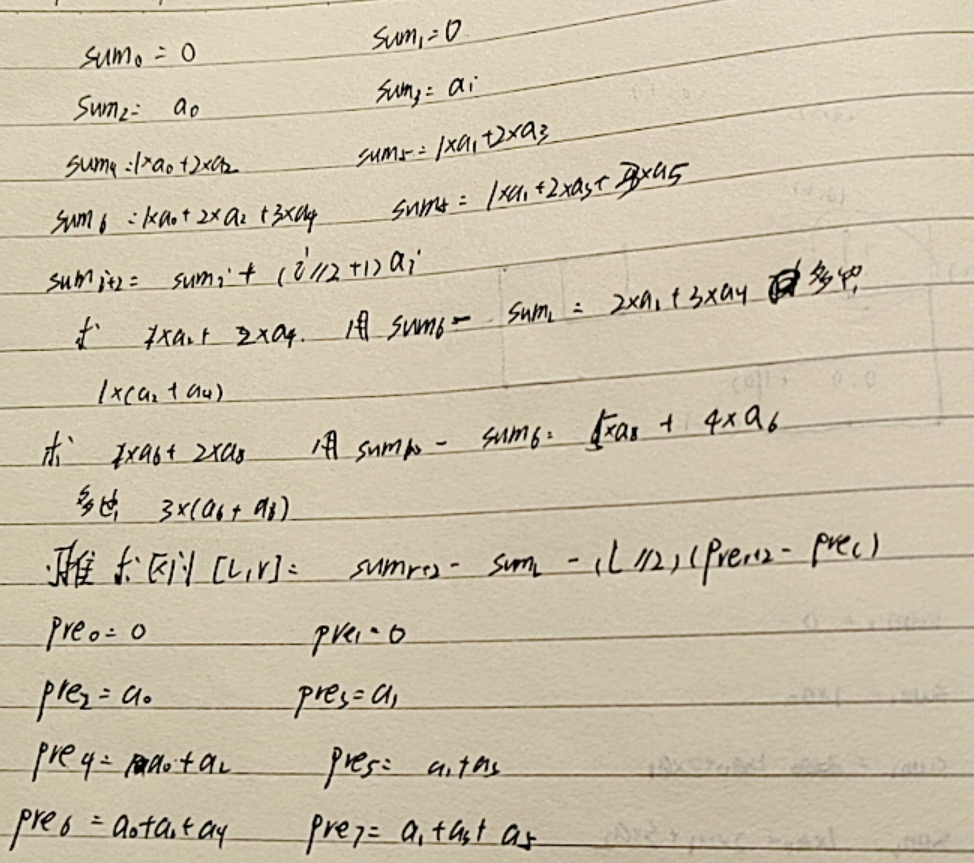 sum₀ = 0 sum₁ = 0
sum₂ = a₀ sum₃ = a₁
sum₄ = 1×a₀ + 2×a₂ sum₅ = 1×a₁ + 2×a₃
sum₆ = 1×a₀ + 2×a₂ + 3×a₄ sum₇ = 1×a₁ + 2×a₃ + 3×a₅
sumᵢ₊₂ = sumᵢ + (i//2+1) aᵢ
求 1×a₂ + 2×a₄. 用 sum₆ - sum₂ = 2×a₂ + 3×a₄ 多出
1×(a₂ + a₄)
求 1×a₆ + 2×a₈ 用 sum₁₀ - sum₆ = 5×a₈ + 4×a₆
多出 3×(a₆ + a₈)
求区间 [L,r] = sumᵣ₊₂ - sum_L - (L//2)(preᵣ₊₂ - pre_L)
pre₀ = 0 pre₁ = 0
pre₂ = a₀ pre₃ = a₁
pre₄ = a₀ + a₂ pre₅ = a₁ + a₃
pre₆ = a₀ + a₂ + a₄ pre₇ = a₁ + a₃ + a₅